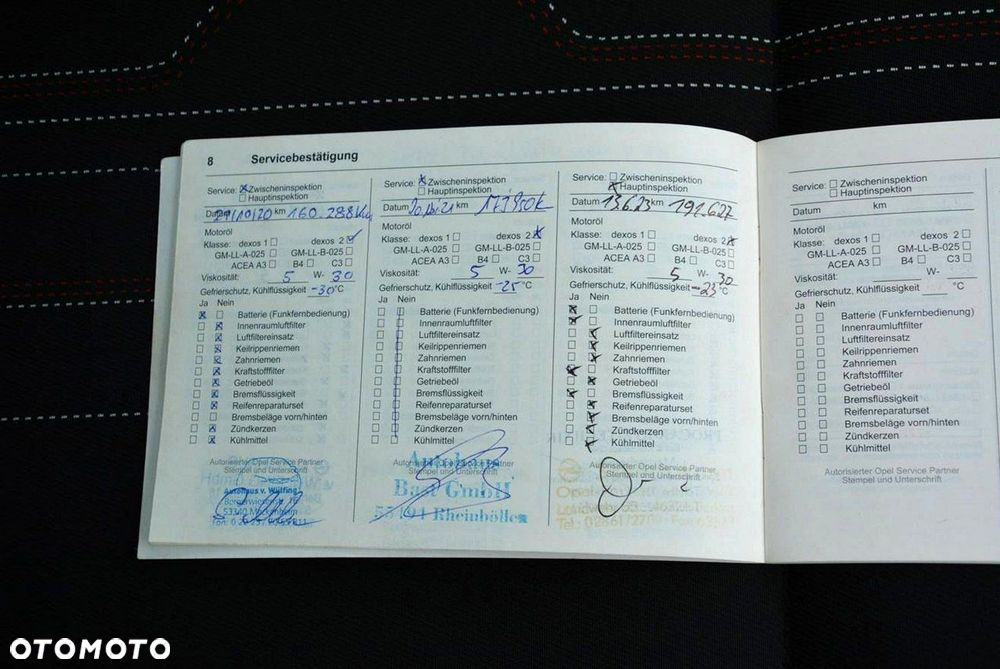 8 Servicebestätigung
Service: Zwischeninspektion
Hauptinspektion
Datum 27/10/20 km 160.288 km
Motoröl
Klasse: dexos 1 dexos 2
GM-LL-A-025 GM-LL-B-025
ACEA A3 B4 C3
Viskosität: 5 W- 30
Gefrierschutz, Kühlflüssigkeit -30 °C
Ja Nein
Batterie (Funkfernbedienung)
Innenraumluftfilter
Luftfiltereinsatz
Keilrippenriemen
Zahnriemen
Kraftstofffilter
Getriebeöl
Bremsflüssigkeit
Reifenreparaturset
Bremsbeläge vorn/hinten
Zündkerzen
Kühlmittel
Autorisierter Opel Service Partner
Stempel und Unterschrift
Autohaus v. Wülfing
53340 Meckenheim
Service: Zwischeninspektion
Hauptinspektion
Datum km
Motoröl
Klasse: dexos 1 dexos 2
GM-LL-A-025 GM-LL-B-025
ACEA A3 B4 C3
Viskosität: 5 W- 30
Gefrierschutz, Kühlflüssigkeit -25 °C
Ja Nein
Batterie (Funkfernbedienung)
Innenraumluftfilter
Luftfiltereinsatz
Keilrippenriemen
Zahnriemen
Kraftstofffilter
Getriebeöl
Bremsflüssigkeit
Reifenreparaturset
Bremsbeläge vorn/hinten
Zündkerzen
Kühlmittel
Autorisierter Opel Service Partner
Stempel und Unterschrift
Autohaus
Bast GmbH
55494 Rheinböllen
Service: Zwischeninspektion
Hauptinspektion
Datum 13.6.23 km 191.627
Motoröl
Klasse: dexos 1 dexos 2
GM-LL-A-025 GM-LL-B-025
ACEA A3 B4 C3
Viskosität: 5 W- 30
Gefrierschutz, Kühlflüssigkeit -23 °C
Ja Nein
Batterie (Funkfernbedienung)
Innenraumluftfilter
Luftfiltereinsatz
Keilrippenriemen
Zahnriemen
Kraftstofffilter
Getriebeöl
Bremsflüssigkeit
Reifenreparaturset
Bremsbeläge vorn/hinten
Zündkerzen
Kühlmittel
Autorisierter Opel Service Partner
Stempel und Unterschrift
Service: Zwischeninspektion
Hauptinspektion
Datum km
Motoröl
Klasse: dexos 1 dexos 2
GM-LL-A-025 GM-LL-B-025
ACEA A3 B4 C3
Viskosität: W-
Gefrierschutz, Kühlflüssigkeit °C
Ja Nein
Batterie (Funkfernbedienung)
Innenraumluftfilter
Luftfiltereinsatz
Keilrippenriemen
Zahnriemen
Kraftstofffilter
Getriebeöl
Bremsflüssigkeit
Reifenreparaturset
Bremsbeläge vorn/hinten
Zündkerzen
Kühlmittel
Autorisierter Opel Service Partner
Stempel und Unterschrift
OTOMOTO